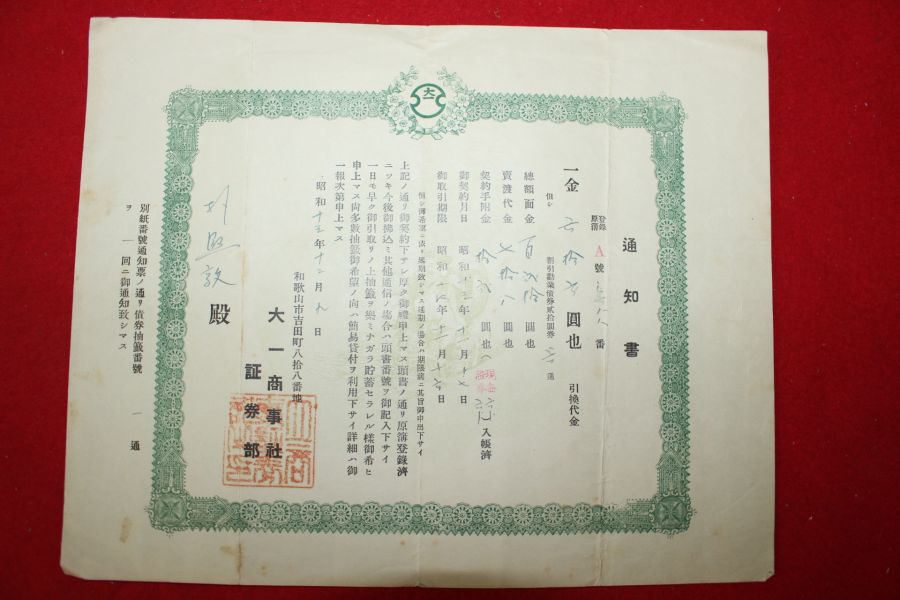 大一
通知書
登錄原簿 A號 番
一金 六拾 圓也 引換代金
但シ 割引勸業債券貳拾圓券 通
總額面金 百貳拾 圓也
賣渡代金 七拾八 圓也
契約手附金 拾貳 圓也 入帳濟
御契約月日 昭和十三年十二月 日
御取引期限 昭和 年十二月 日
上記ノ通リ御契約下サレ厚ク御禮申上マス頭書ノ通リ原簿登錄濟
ニツキ今後御拂込ミ其他通信ノ場合ハ頭書番號ヲ御記入下サイ
一日モ早ク御引取リノ上抽籤ヲ樂ミナガラ貯蓄セラレル樣御希ヒ
申上マス尚多數抽籤御希望ノ向ハ簡易貸付ヲ利用下サイ詳細ハ御
一報次第申上マス
昭和十三年十二月九日
和歌山市吉田町八拾八番地
大一商事社
証券部
殿
別紙番號通知票ノ通リ債券抽籤番號 一通
ヲ 一回ニ御通知致シマス